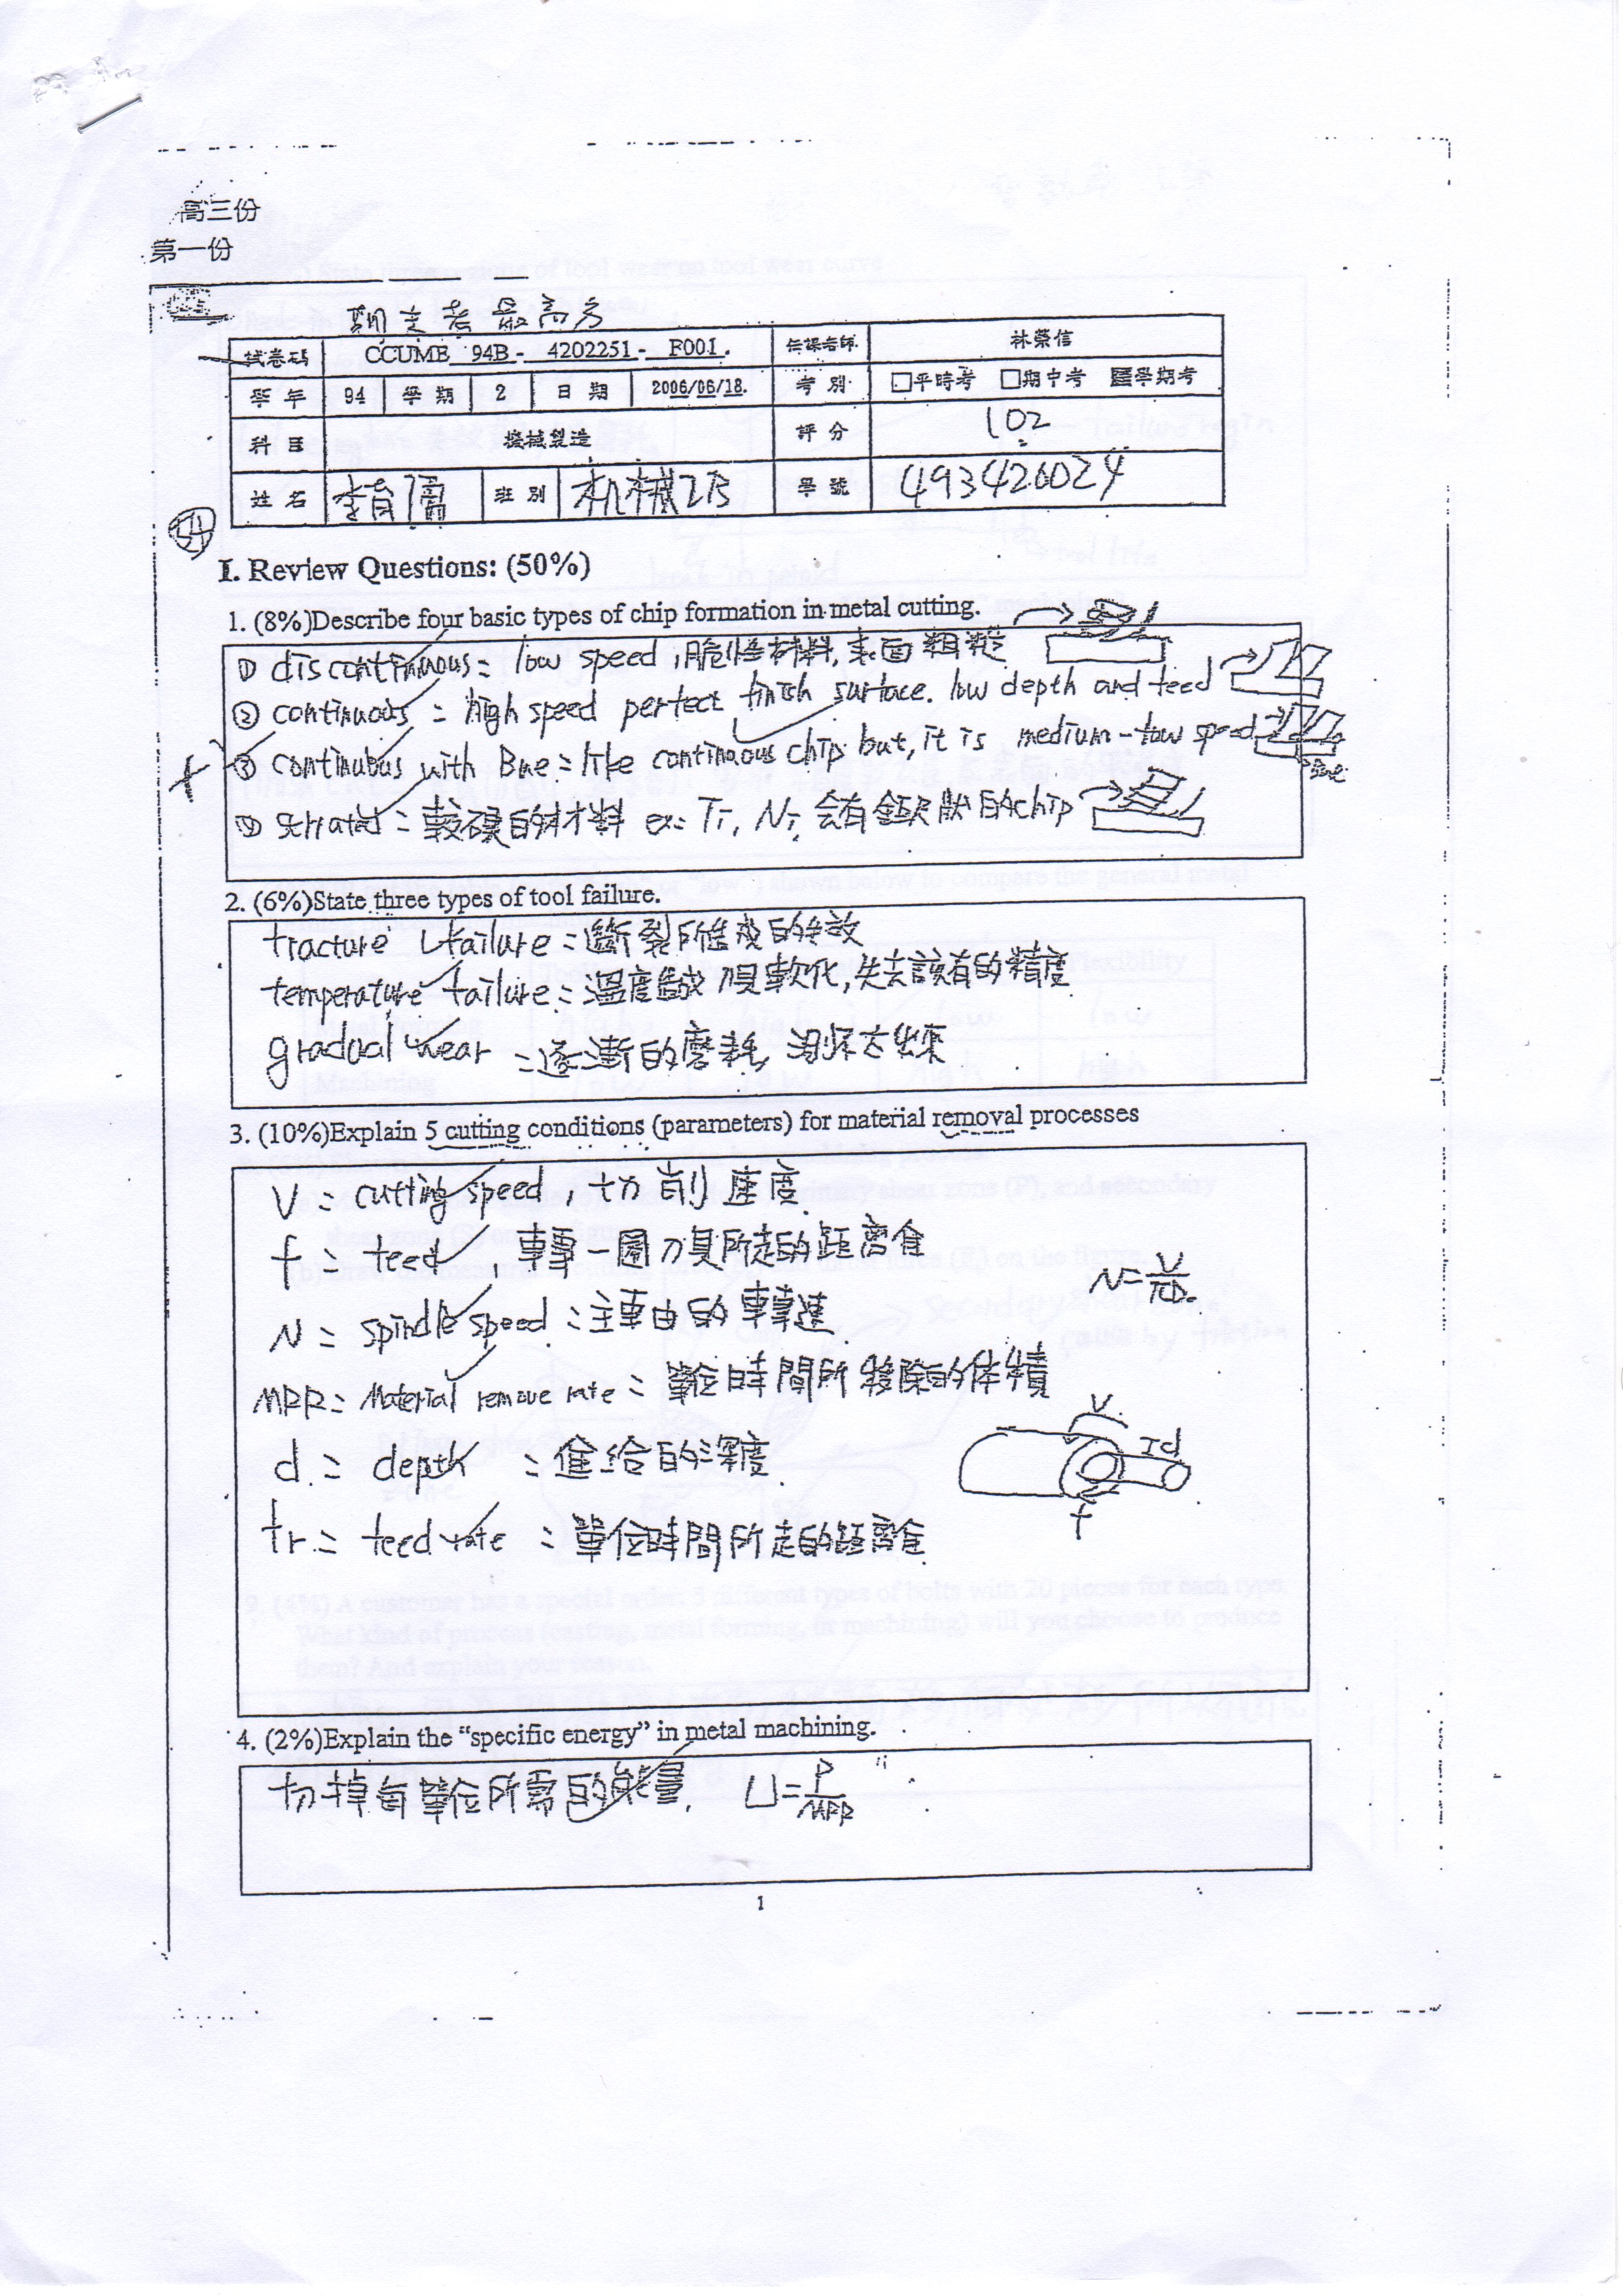 高三份
第一份
期末考最高分
試卷碼 CCUME 94B - 4202251 - F001. 任課老師 林榮信
學年 94 學期 2 日期 2006/06/18. 考別 □平時考 □期中考 ■學期考
科目 機械製造 評分 102
姓名 李育儒 班別 机械2B 學號 493420024
I. Review Questions: (50%)
1. (8%)Describe four basic types of chip formation in metal cutting.
① discontinuous = low speed, 脆性材料, 表面粗糙
② continuous = high speed perfect finish surface. low depth and feed
③ continuous with Bue = like continuous chip but, it is medium-low speed
Bue
④ serrated = 較硬的材料 ex: Ti, Ni, 會有鋸狀的chip
2. (6%)State three types of tool failure.
fracture failure = 斷裂所造成的失效
temperature failure = 溫度 刀具軟化, 失去該有的精度
gradual wear = 逐漸的磨耗
3. (10%)Explain 5 cutting conditions (parameters) for material removal processes
V = cutting speed, 切削速度
f = feed, 轉一圈刀具所走的距離
N = spindle speed = 主軸的轉速
N = V/πD₀
MRR = Material remove rate = 單位時間所移除的体積
d = depth = 進給的深度
V
d
f
fr = feed rate = 單位時間所走的距離
4. (2%)Explain the “specific energy” in metal machining.
切掉每單位所需的能量. U = P/MRR
1